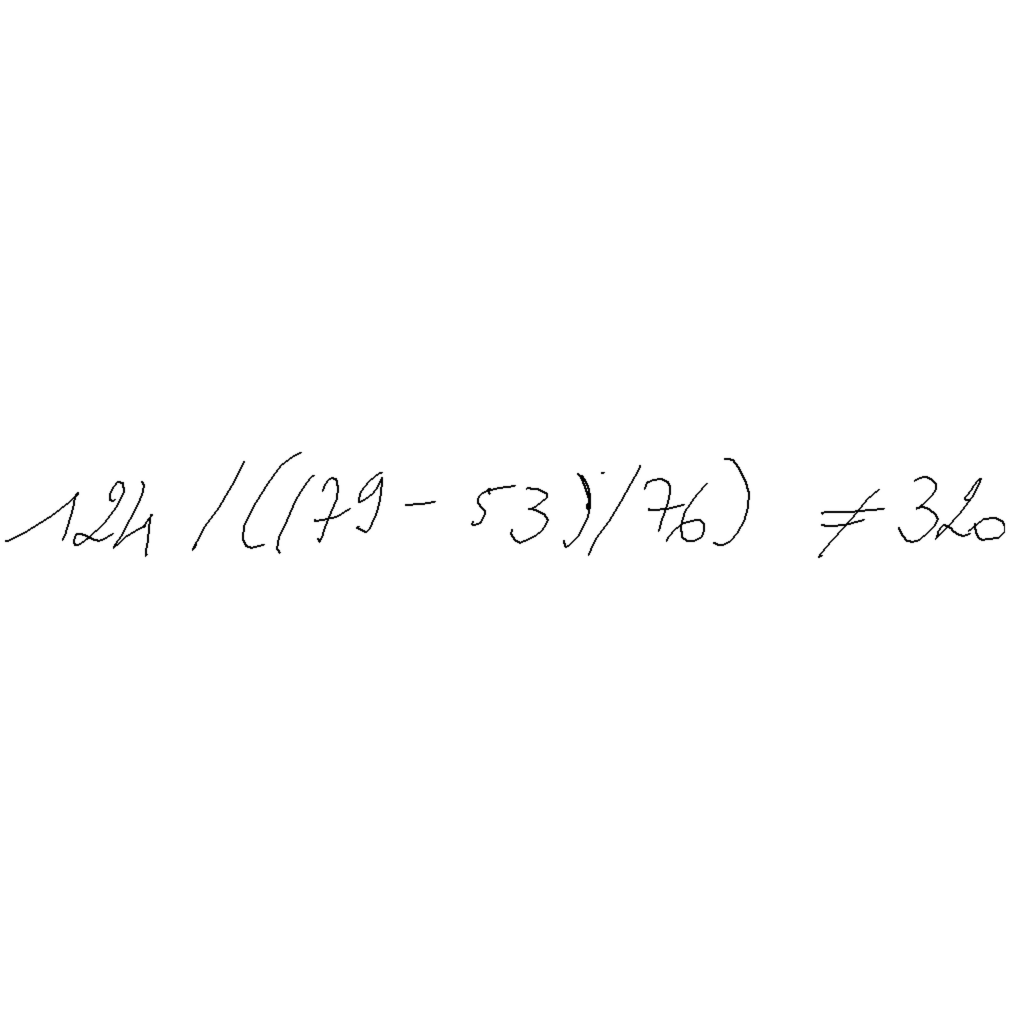 124 / ((79 - 53) / 76) ≠ 320